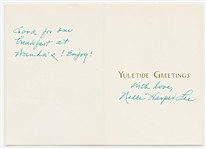 Good for one
breakfast at
Wanda's! Enjoy!
YULETIDE GREETINGS
With love,
Nelle Harper Lee